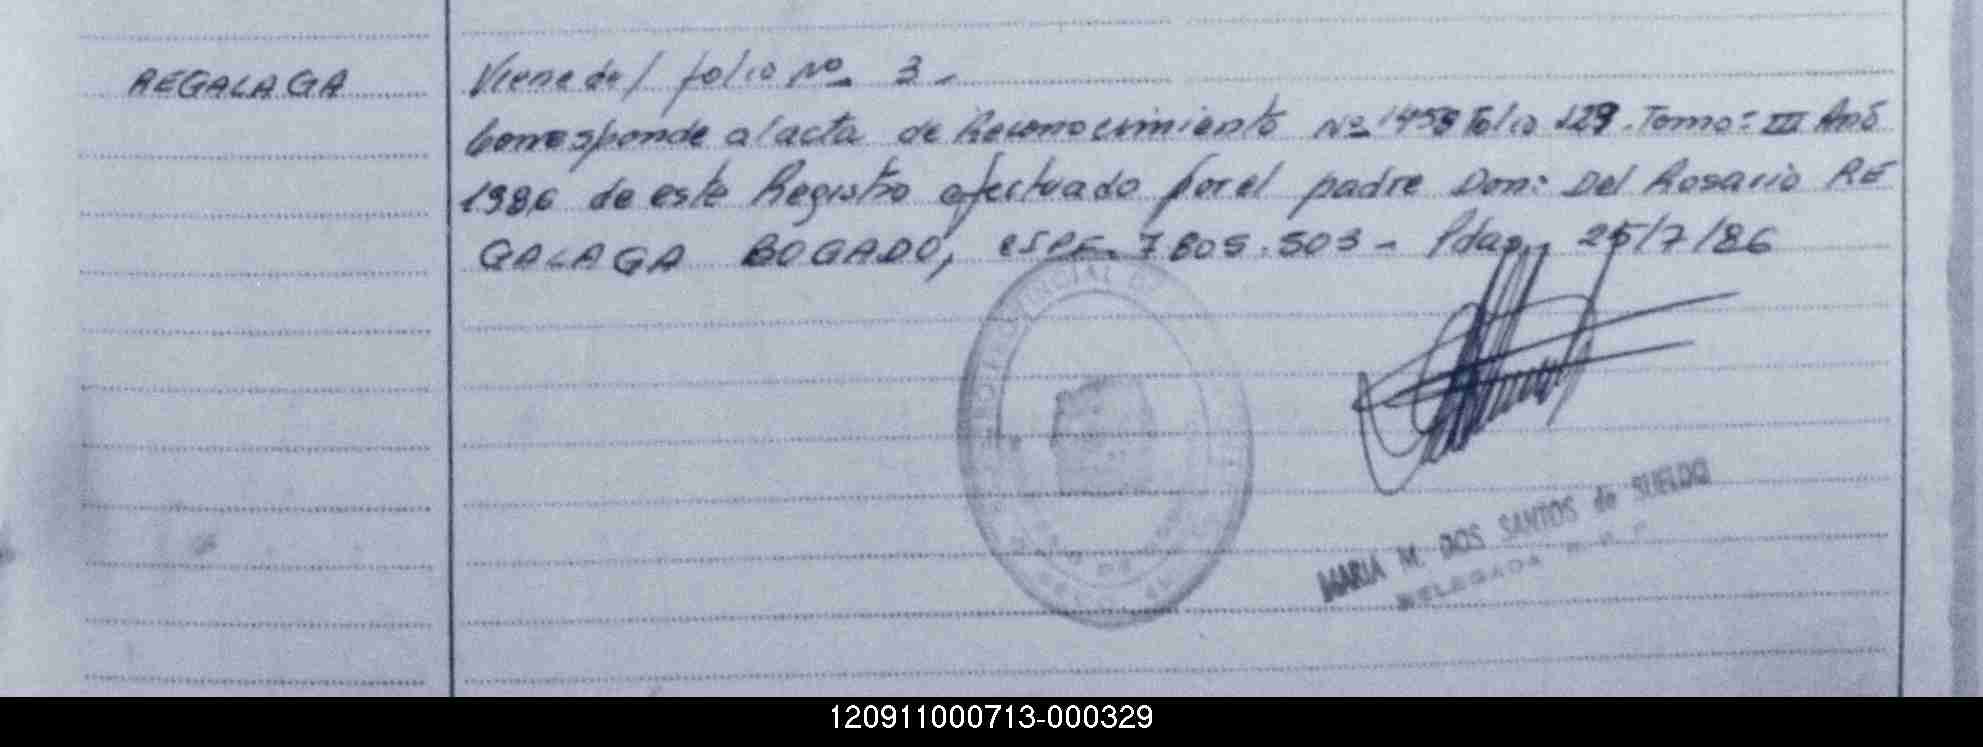 REGALAGA
Viene del folio Nº 3-
Corresponde al acta de Reconocimiento Nº 1458 Folio 129. Tomo: III Año
1986 de este Registro efectuado por el padre Don: Del Rosario RE
GALAGA BOGADO, 7.805.503 - Pdas, 25/7/86
MARIA M. DOS SANTOS de SUELDO
DELEGADA
120911000713-000329